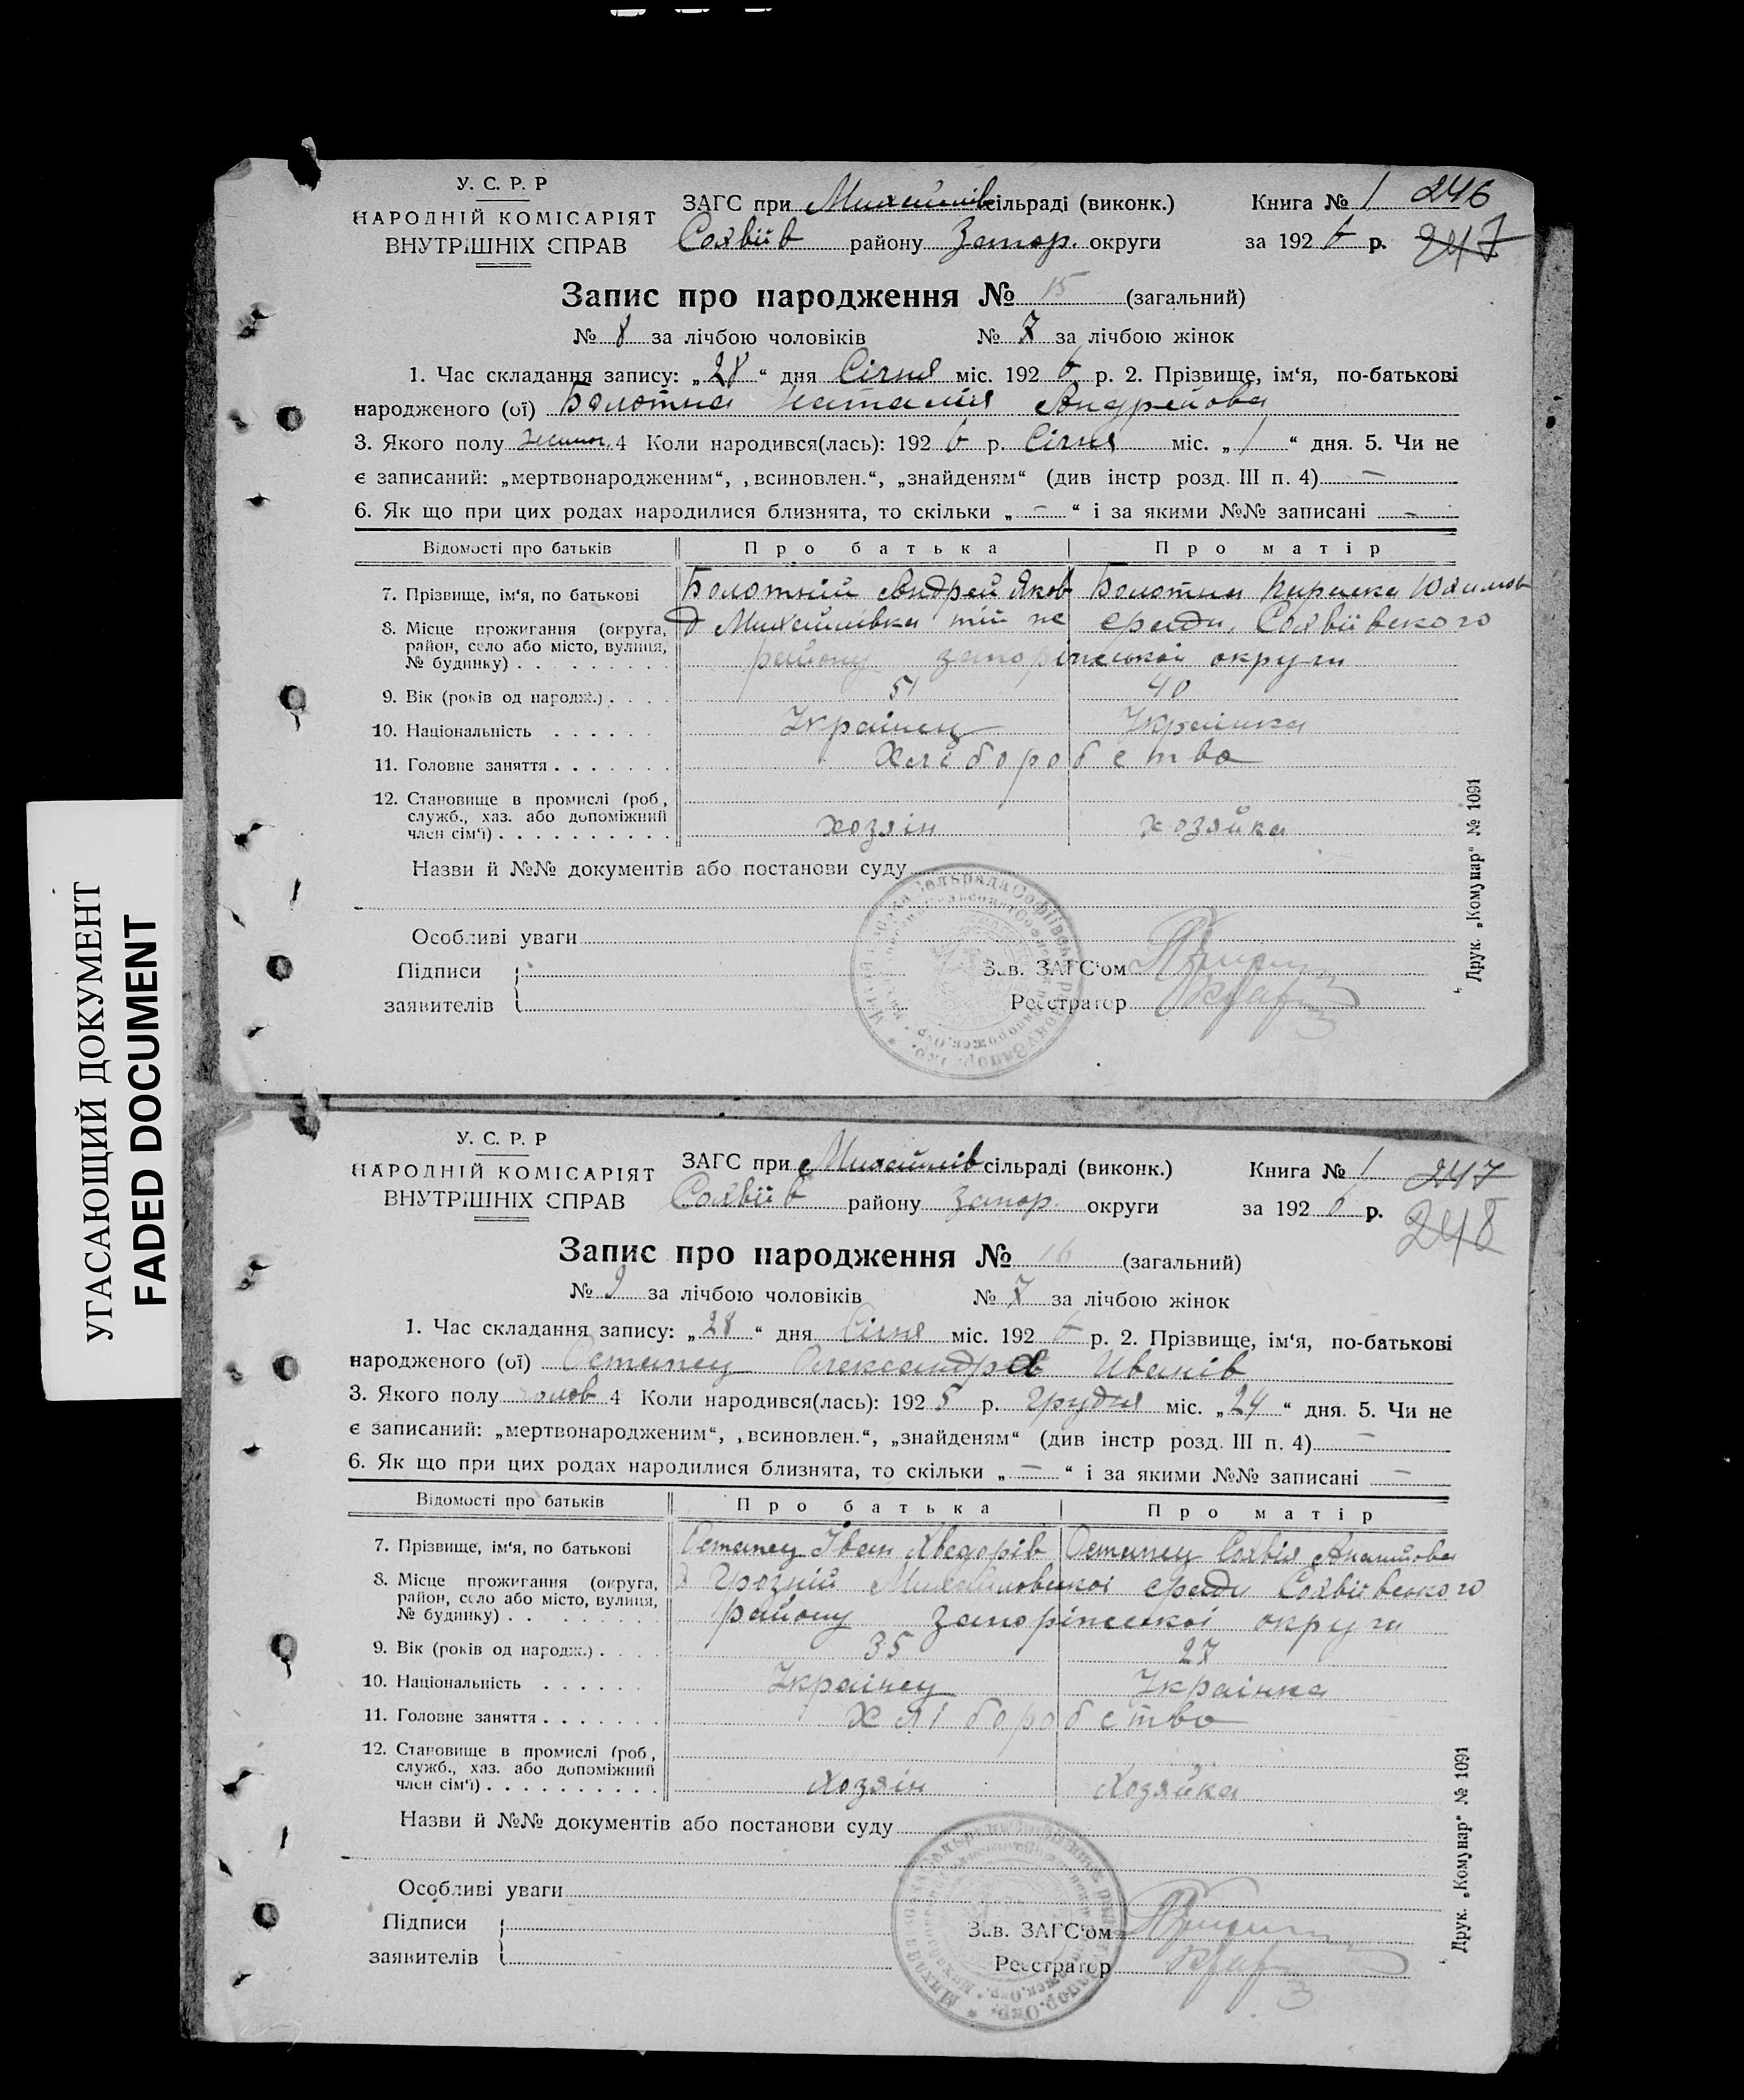 УГАСАЮЩИЙ ДОКУМЕНТ
FADED DOCUMENT
У. С. Р. Р
НАРОДНІЙ КОМІСАРІЯТ
ВНУТРІШНІХ СПРАВ
ЗАГС при Михайлів сільраді (виконк.)
Софіїв району Запор. округи
Книга № 1 246
за 1926 р. 247
Запис про народження № 15 (загальний)
№ 8 за лічбою чоловіків № 7 за лічбою жінок
1. Час складання запису: „28“ дня Січня міс. 1926 р. 2. Прізвище, ім‘я, по-батькові
народженого (ої) Болотна Наталія Андрейова
3. Якого полу жиноч. 4 Коли народився(лась): 1926 р. Січня міс. „1“ дня. 5. Чи не
є записаний: „мертвонародженим“, „всиновлен.“, „знайденям“ (див інстр розд. III п. 4) —
6. Як що при цих родах народилися близнята, то скільки „—“ і за якими №№ записані —
Відомості про батьків Про батька Про матір
7. Прізвище, ім‘я, по батькові Болотній Андрей Яков Болотна Параска
8. Місце прожигання (округа, район, село або місто, вулиця, № будинку) Михайлівка тій же сради, Софіївского
району запоріжської округи
9. Вік (років од народж.) 51 40
10. Національність Українец Українка
11. Головне заняття Хліборобство
12. Становище в промислі (роб, служб., хаз. або допоміжний член сім‘ї) хозяін хозяйка
Назви й №№ документів або постанови суду
Особливі уваги
Підписи
заявителів
Зав. ЗАГС‘ом
Реєстратор
Друк. „Комунар“ № 1091
У. С. Р. Р
НАРОДНІЙ КОМІСАРІЯТ
ВНУТРІШНІХ СПРАВ
ЗАГС при Михайлів сільраді (виконк.)
Софіїв району Запор. округи
Книга № 1 247
за 1926 р. 248
Запис про народження № 16 (загальний)
№ 9 за лічбою чоловіків № 7 за лічбою жінок
1. Час складання запису: „28“ дня Січня міс. 1926 р. 2. Прізвище, ім‘я, по-батькові
народженого (ої) Остапец Олександра Иванів
3. Якого полу чолов 4 Коли народився(лась): 1925 р. Грудня міс. „24“ дня. 5. Чи не
є записаний: „мертвонародженим“, „всиновлен.“, „знайденям“ (див інстр розд. III п. 4) —
6. Як що при цих родах народилися близнята, то скільки „—“ і за якими №№ записані —
Відомості про батьків Про батька Про матір
7. Прізвище, ім‘я, по батькові Остапец Іван Остапец Софія
8. Місце прожигання (округа, район, село або місто, вулиця, № будинку) Грозній Михайловскої сради Софіївського
району запоріжскої округи
9. Вік (років од народж.) 35 27
10. Національність Українец Українка
11. Головне заняття хліборобство
12. Становище в промислі (роб, служб., хаз. або допоміжний член сім‘ї) Хозяін Хозяйка
Назви й №№ документів або постанови суду
Особливі уваги
Підписи
заявителів
Зав. ЗАГС‘ом
Реєстратор
Друк. „Комунар“ № 1091